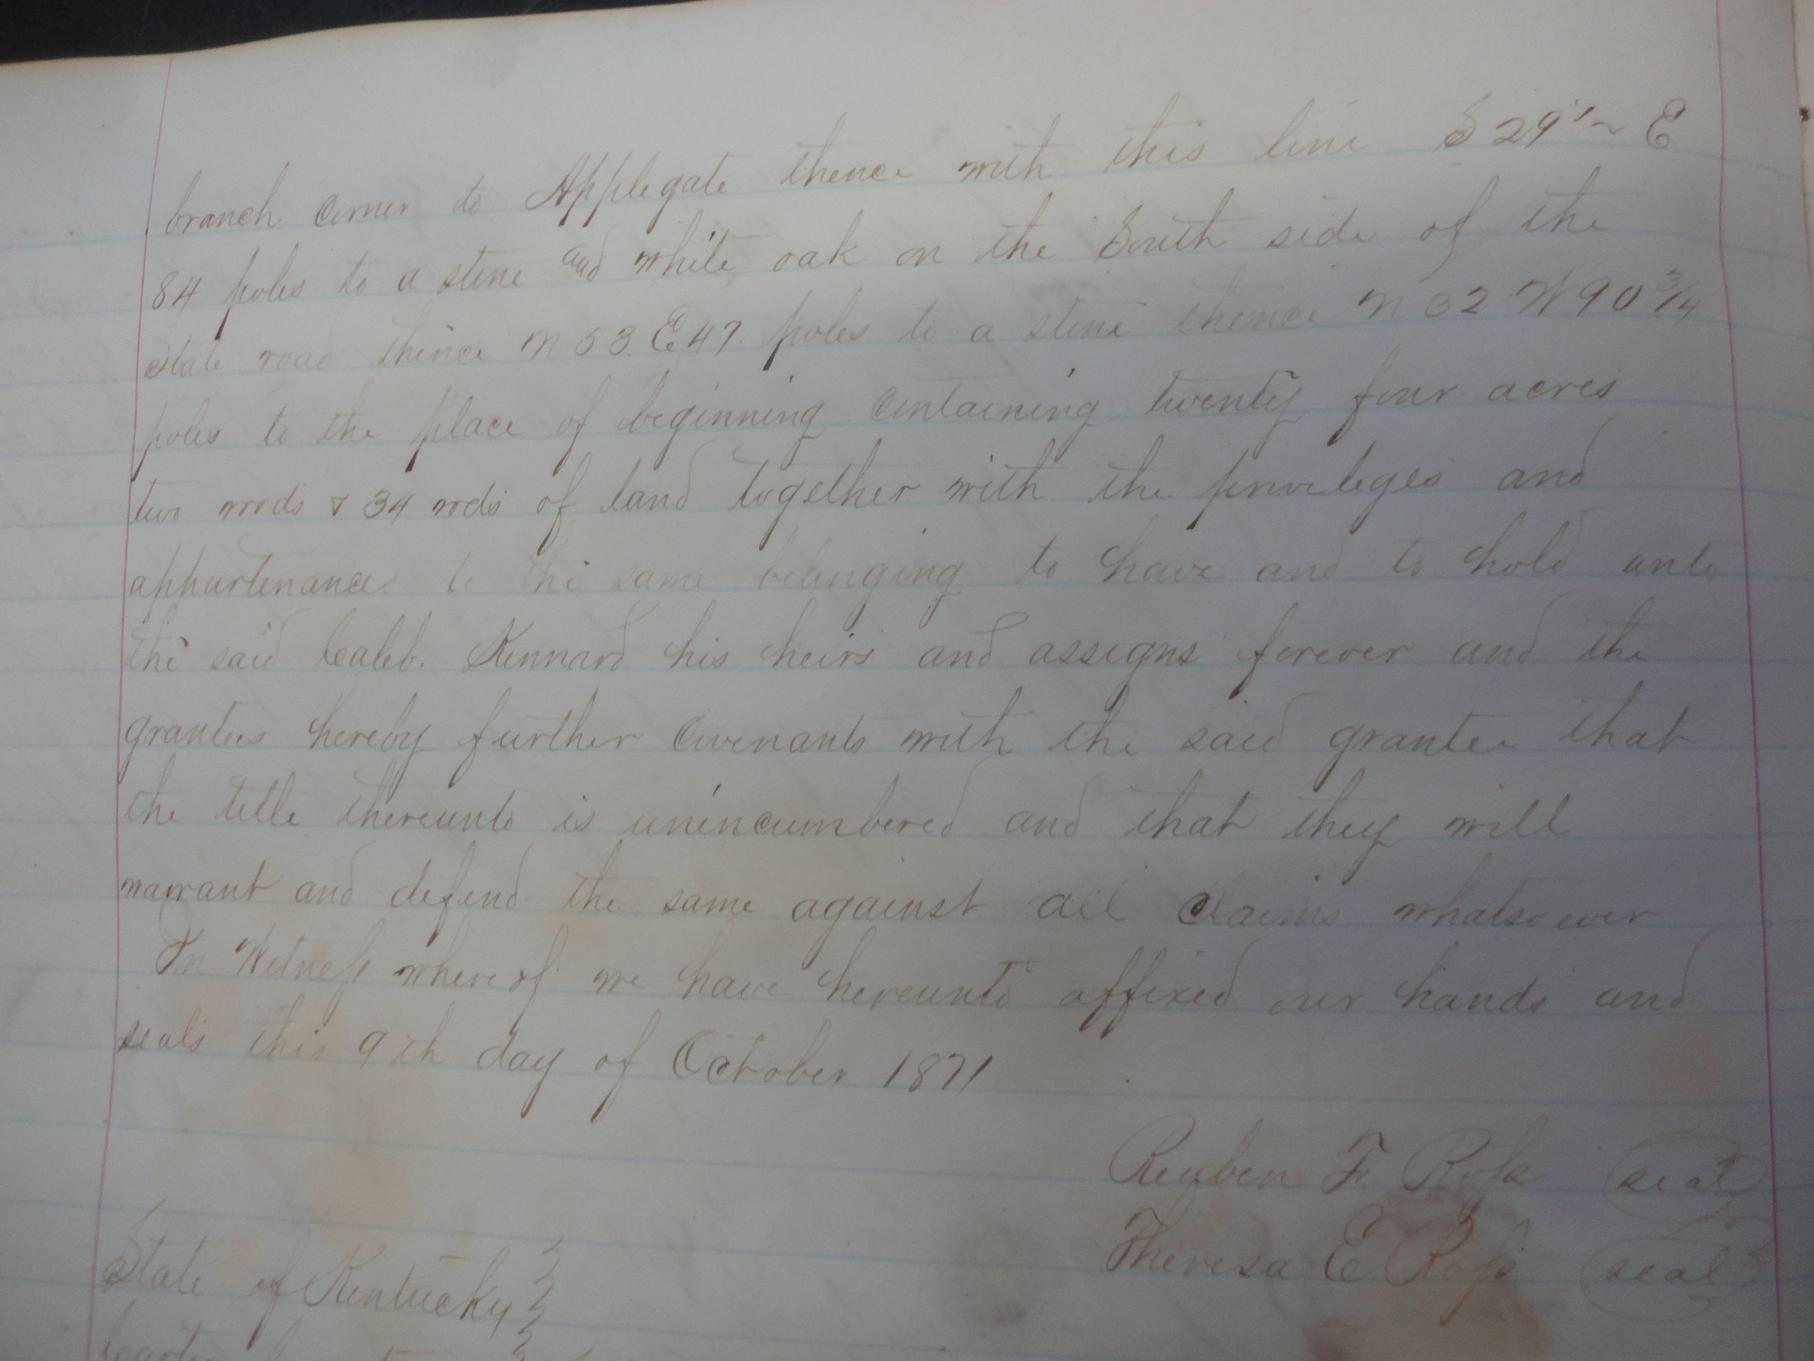 branch corner to Applegate thence with this line S 29 E
84 poles to a stone and white oak on the South side of the
state road thence N 53 E 47 poles to a stone thence N 32 W 90 3/4
poles to the place of beginning containing twenty four acres
two roods & 34 rods of land together with the privileges and
appurtenances to the same belonging to have and to hold unto
the said Caleb. Kennard his heirs and assigns forever and the
grantees hereby further covenants with the said grantee that
the title thereunto is unincumbered and that they will
warrant and defend the same against all claims whatsoever
In Witness whereof we have hereunto affixed our hands and
seals this 9th day of October 1871
Reuben F. Ross seal
Theresa E Ross seal
State of Kentucky